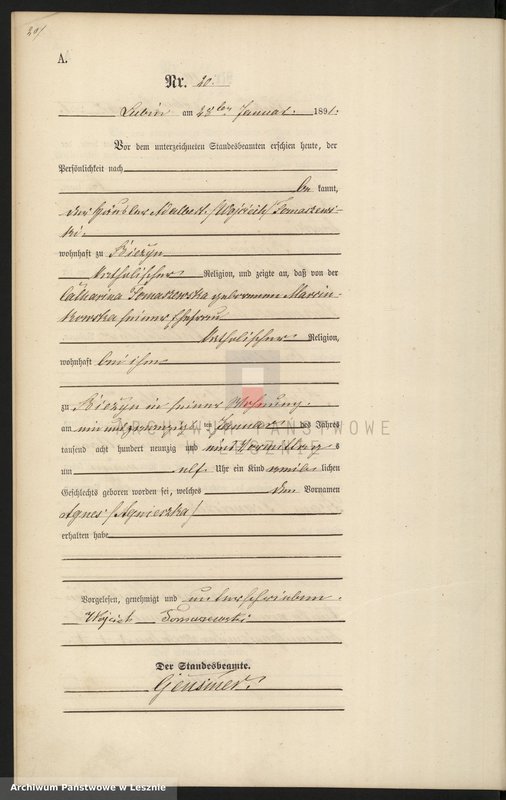 A.
Nr. 20.
Lubin am 23ten Januar 1891.
Vor dem unterzeichneten Standesbeamten erschien heute, der
Persönlichkeit nach
be kannt,
der Häusler Adalbert /Wojciech/ Tomaszews-
ki
wohnhaft zu Bieżyn
katholischer Religion, und zeigte an, daß von der
Catharina Tomaszewska geborenen Marcin-
kowska seiner Ehefrau
katholischer Religion,
wohnhaft bei ihm
zu Bieżyn in seiner Wohnung
am ein und zwanzigsten Januar des Jahres
tausend acht hundert neunzig und eins Vormittags
um elf Uhr ein Kind weib lichen
Geschlechts geboren worden sei, welches den Vornamen
Agnes /Agnieszka/
erhalten habe
Vorgelesen, genehmigt und unterschrieben.
Wojciech Tomaszewski
Der Standesbeamte.
ARCHIWUM PAŃSTWOWE
W LESZNIE
Archiwum Państwowe w Lesznie